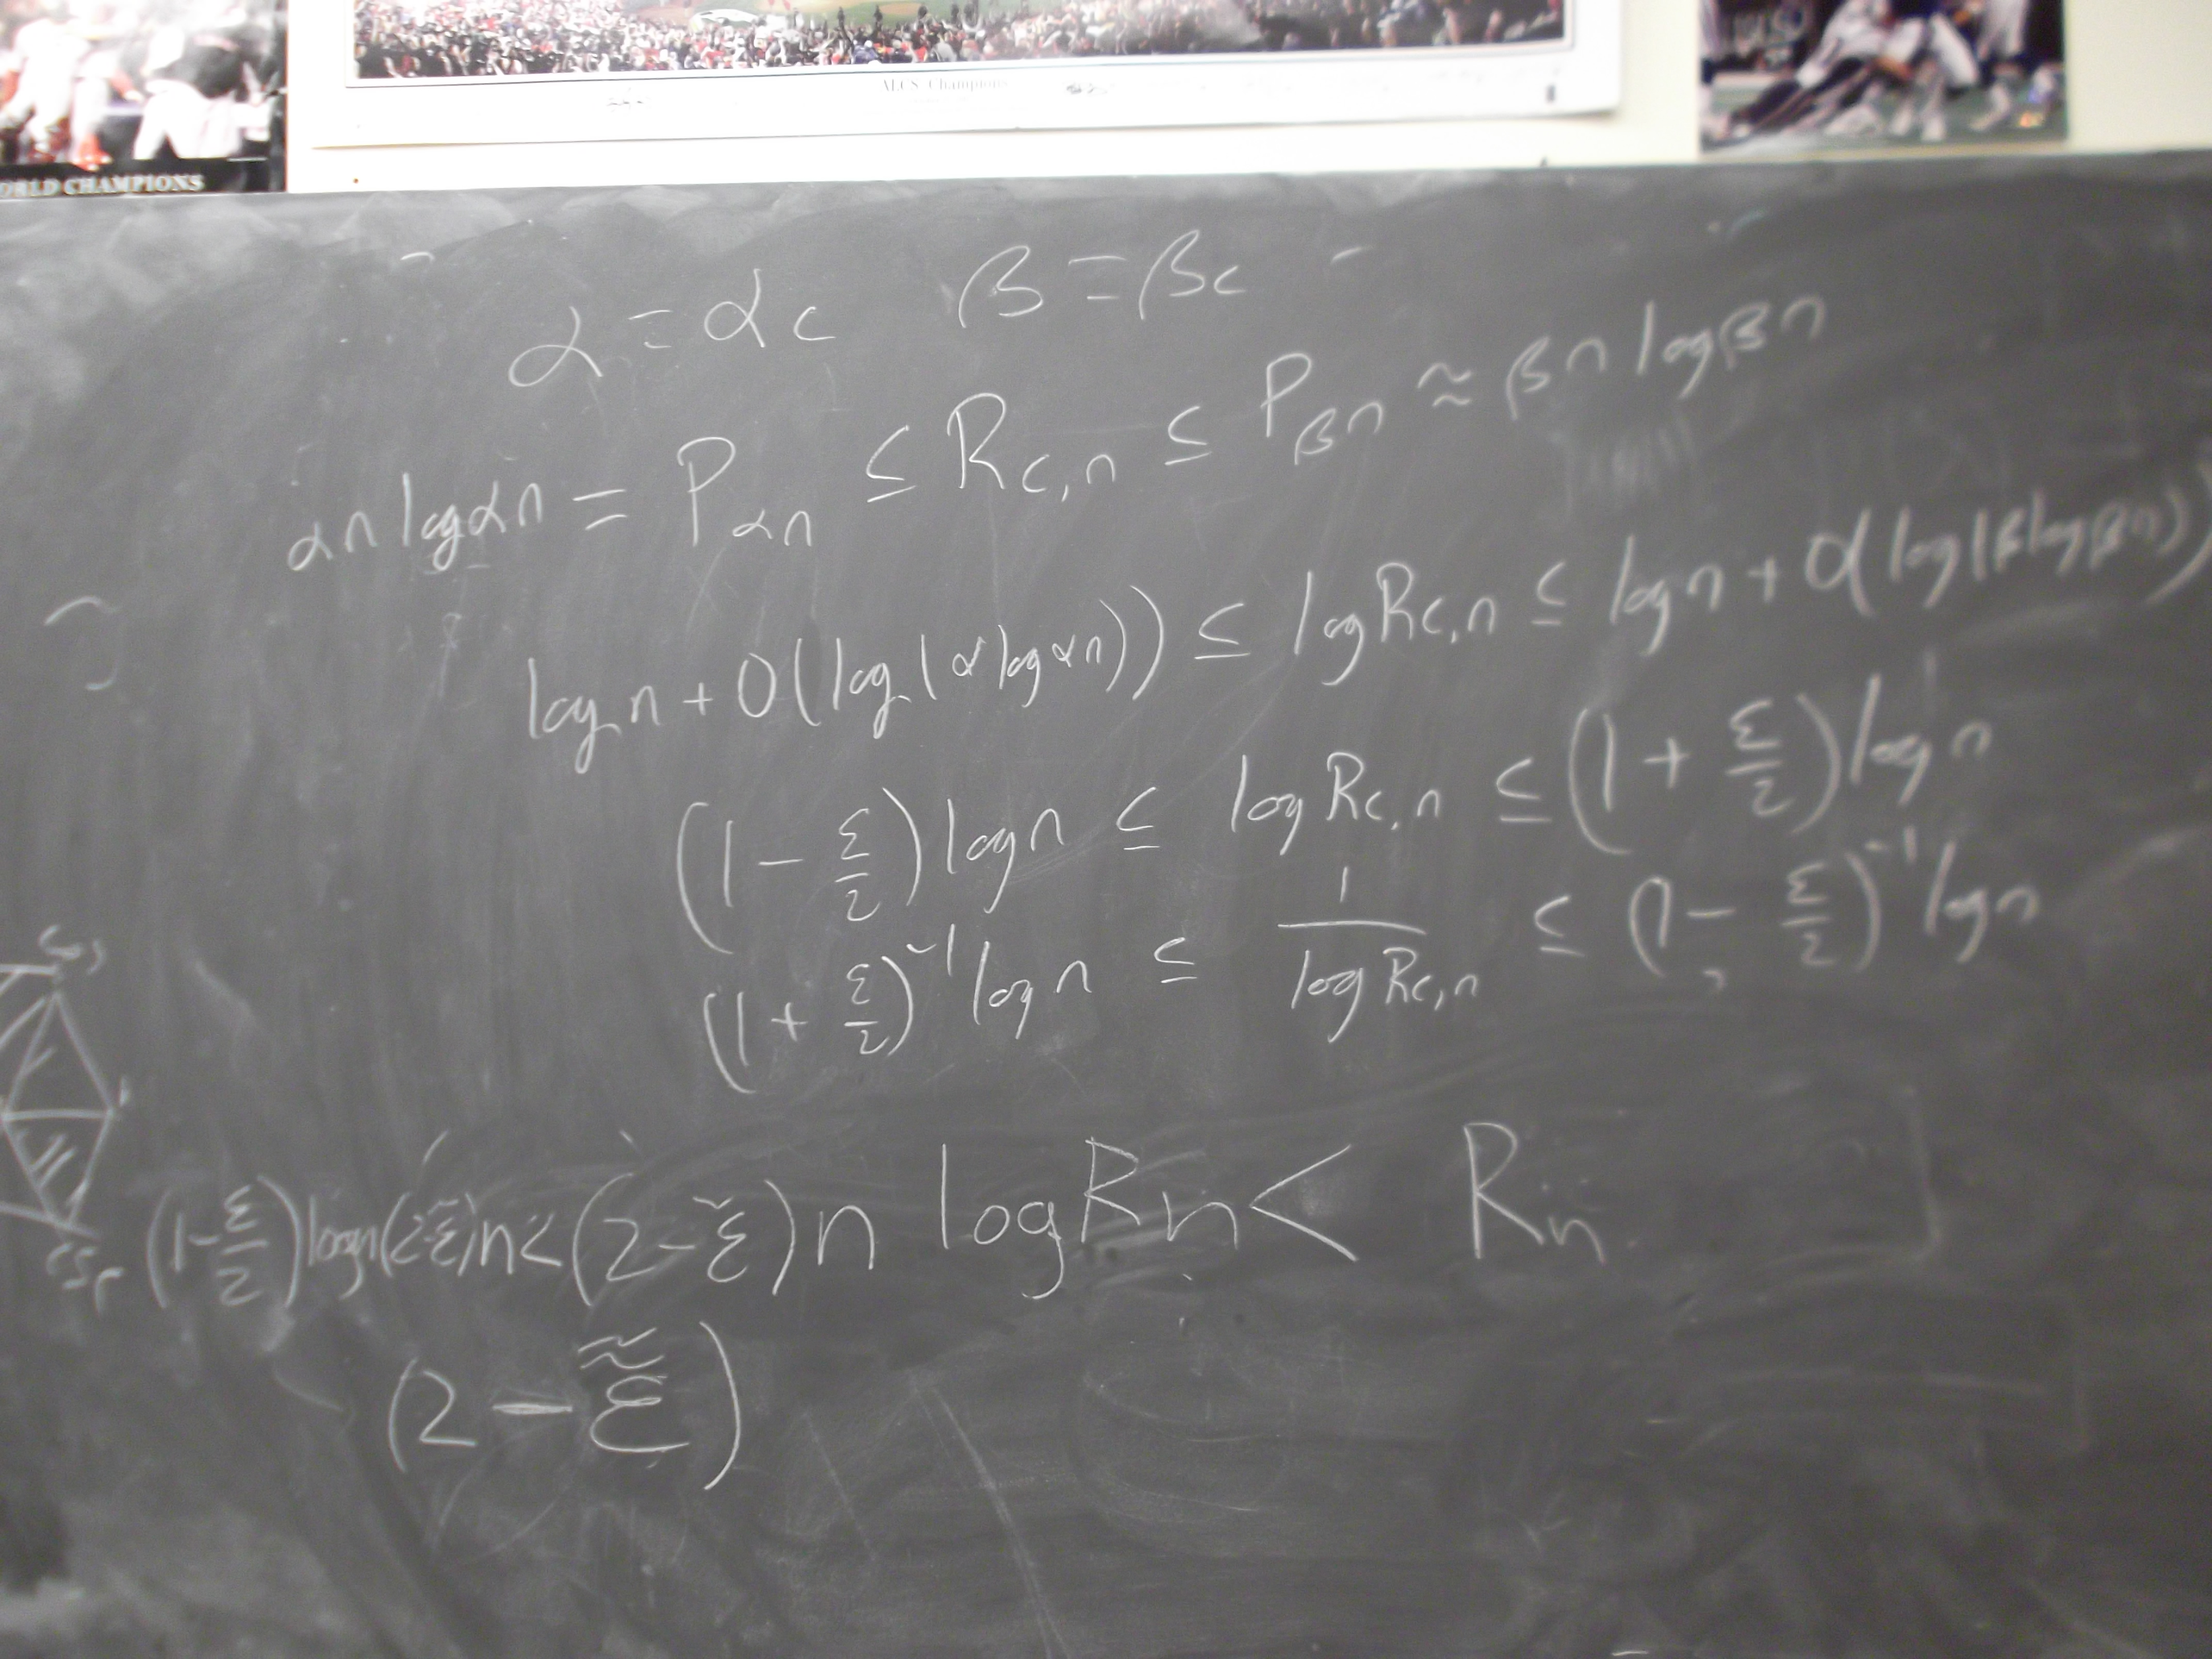 ALCS Champions
ORLD CHAMPIONS
α = αc β = βc
αn log αn = Pαn ≤ Rc,n ≤ Pβn ≈ βn log βn
log n + O(log(α log αn)) ≤ log Rc,n ≤ log n + O(log(β log βn))
(1 - ε/2) log n ≤ log Rc,n ≤ (1 + ε/2) log n
(1 + ε/2)⁻¹ log n ≤ 1/log Rc,n ≤ (1 - ε/2)⁻¹ log n
(1 - ε/2) log n (2-ε̃)n < (2 - ε̃) n log Rn < Rn
(2 - ε̃̃)